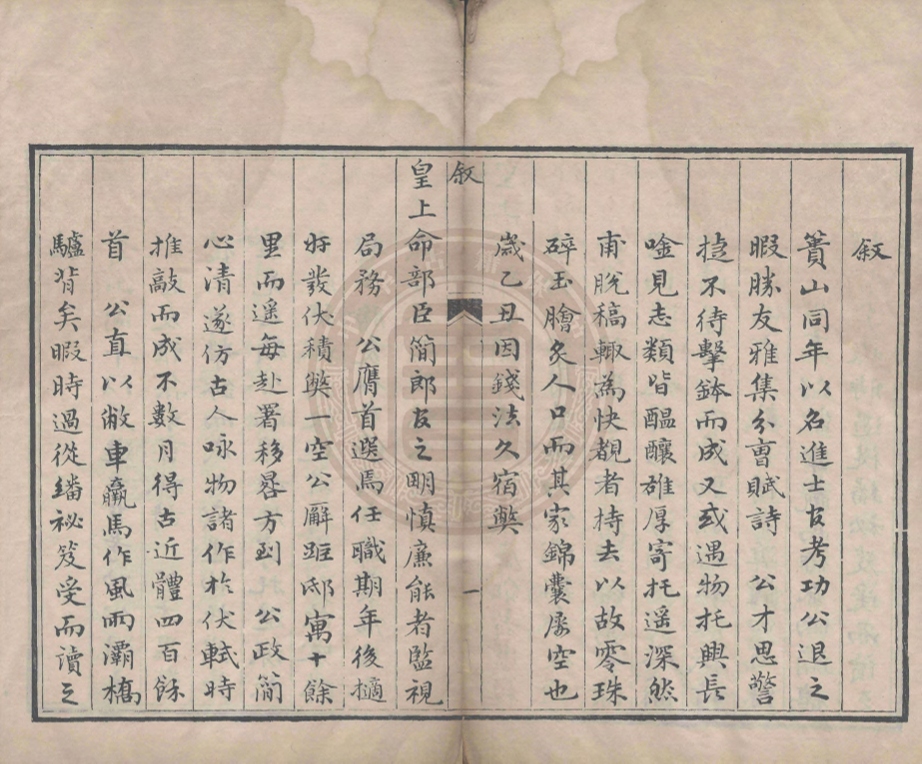 叙
蕢山同年以名進士官考功公退之
暇勝友雅集分曹賦詩　公才思警
捷不待擊鉢而成又或遇物托興長
唫見志類皆醞釀雄厚寄托遥深然
甫脫稿輒為快覩者持去以故零珠
碎玉膾炙人口而其家錦囊屡空也
歲乙丑因錢法久宿獘
叙
一
皇上命部臣簡郎官之明慎廉能者監視
局務　公膺首選焉任職期年後擿
奸發伏積獘一空公廨距邸寓十餘
里而遥每赴署移晷方到　公政簡
心清遂仿古人咏物諸作於伏軾時
推敲而成不數月得古近體四百餘
首　公直以敝車羸馬作風雨灞橋
驢背矣暇時過從繙祕笈受而讀之